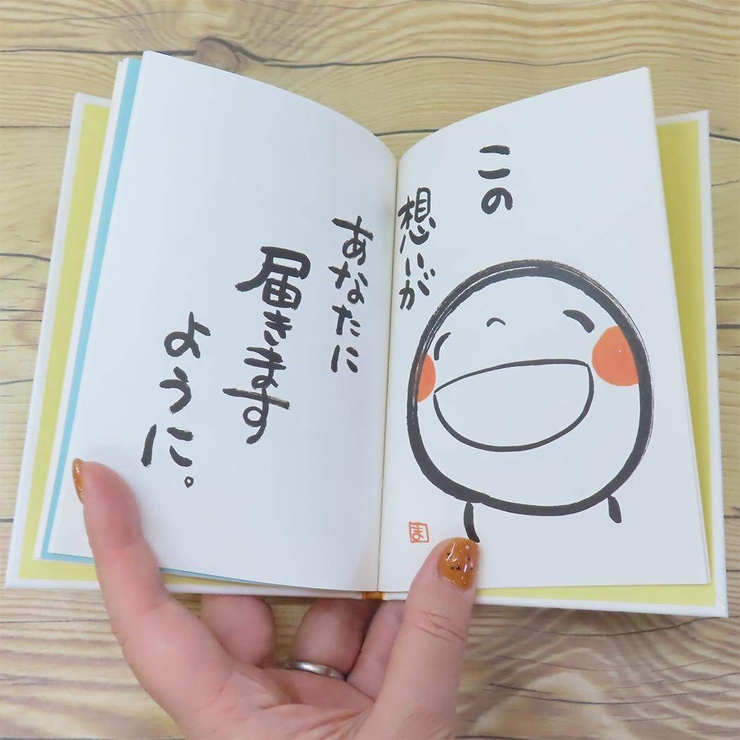 この
想いが
あなたに
届きます
ように。
ま